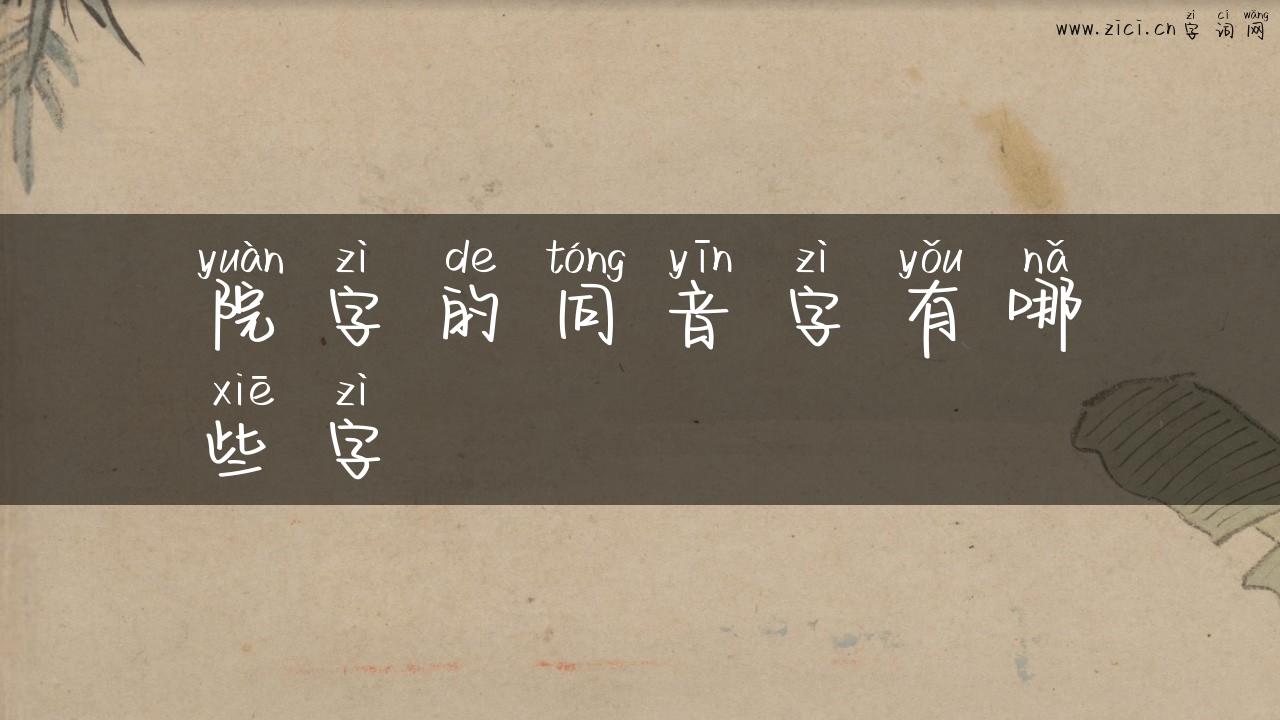 zì cí wǎng
www.zici.cn 字词网
yuàn zì de tóng yīn zì yǒu nǎ
院字的同音字有哪
xiē zì
些字